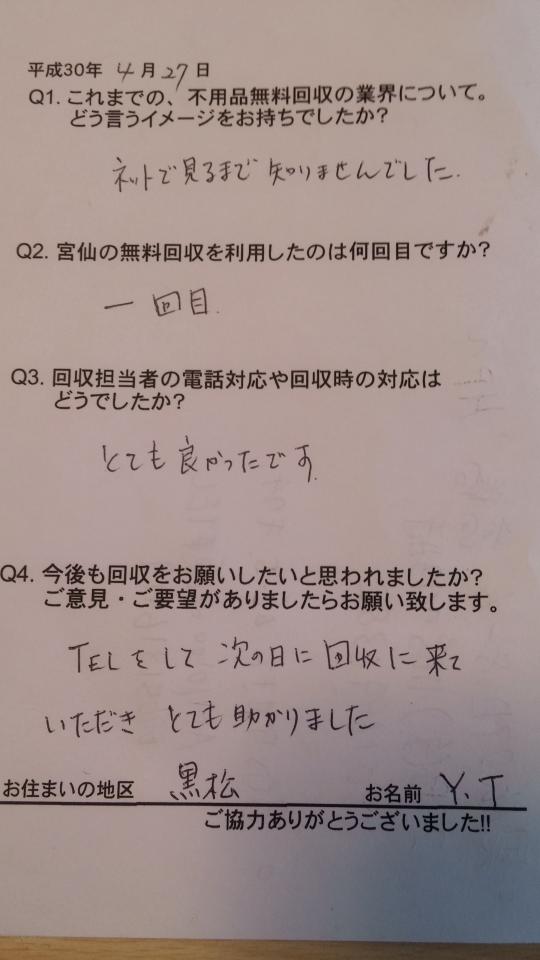 平成30年 4月27日
Q1. これまでの、不用品無料回収の業界について。
どう言うイメージをお持ちでしたか?
ネットで見るまで 知りませんでした.
Q2. 宮仙の無料回収を利用したのは何回目ですか?
一回目.
Q3. 回収担当者の電話対応や回収時の対応は
どうでしたか?
とても良かったです.
Q4. 今後も回収をお願いしたいと思われましたか?
ご意見・ご要望がありましたらお願い致します。
TELをして 次の日に 回収に来て
いただき とても助かりました
お住まいの地区 黒松 お名前 Y.T
ご協力ありがとうございました!!